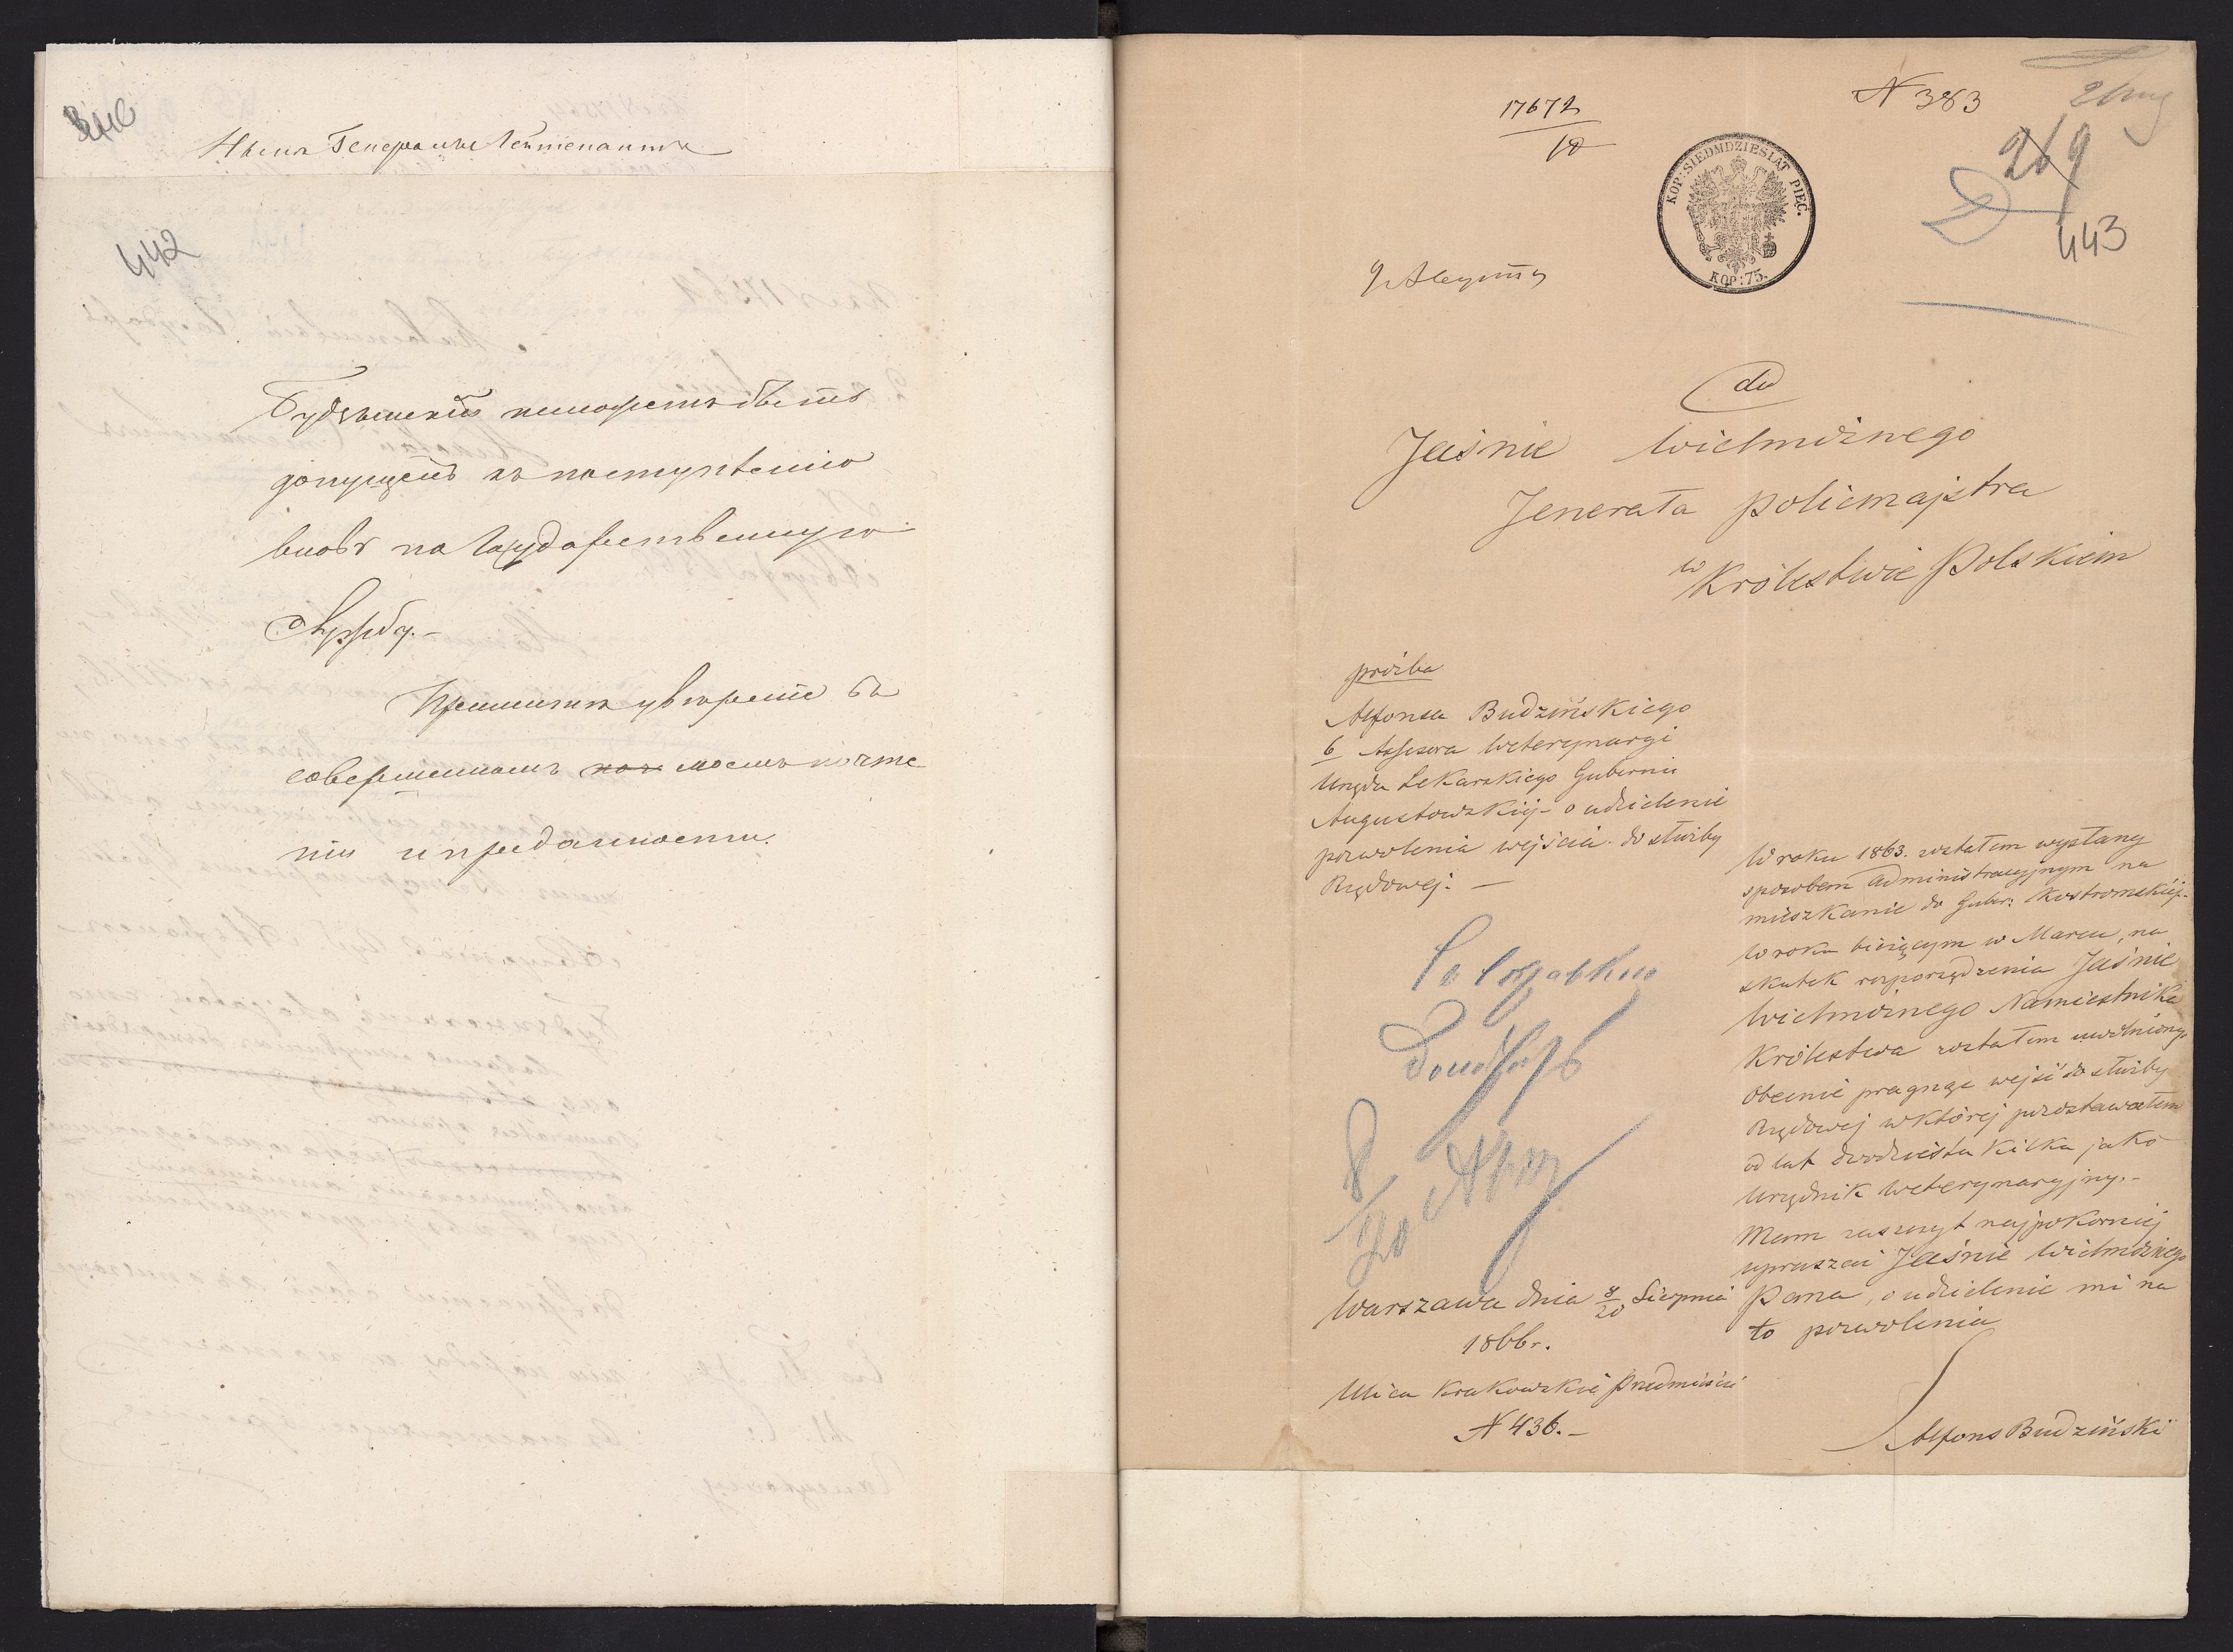 Генералъ Лейтенантъ
442
Будзынскій можетъ быть
допущенъ къ поступленію
вновь на Государственную
службу.-
Примите увѣреніе въ
совершенномъ моемъ почте
ніи и преданности.
17672
18
N 383
269
443
KOP: SIEDMDZIESIĄT PIĘĆ.
KOP: 75.
9 Августа
do
Jaśnie Wielmożnego
Jenerała Policmajstra
w Królestwie Polskiem
prożba
Alfonsa Budzińskiego
b Assesora Weterynaryi
Urzędu Lekarskiego Gubernii
Augustowskiej - o udzielenie
pozwolenia wejścia do służby
Rządowej. -
W roku 1863. zostałem wysłany
sposobem administracyjnym na
mieszkanie do Guber: Kostromskiej.-
W roku bieżącym w Marcu, na
skutek rozporządzenia Jaśnie
Wielmożnego Namiestnika
Królestwa zostałem uwolniony.
Obecnie pragnąc wejść do służby
Rządowej w której pozostawałem
od lat dwódziestu kilku jako
Urzędnik Weterynaryjny.-
Mam zaszczyt najpokorniej
upraszać Jaśnie Wielmożnego
Pana, o udzielenie mi na
to pozwolenia
Alfons Budziński
Со справкою
доложить
8/20 Авг
Warszawa dnia 8/20 Sierpnia
1866 r.
Ulica Krakowskie Przedmieście
N 436.-